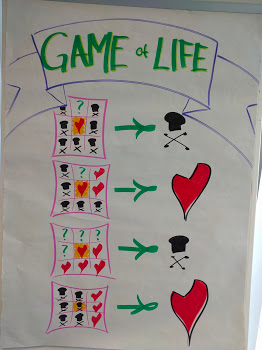 GAME of LIFE
?
?
? ? ?
?